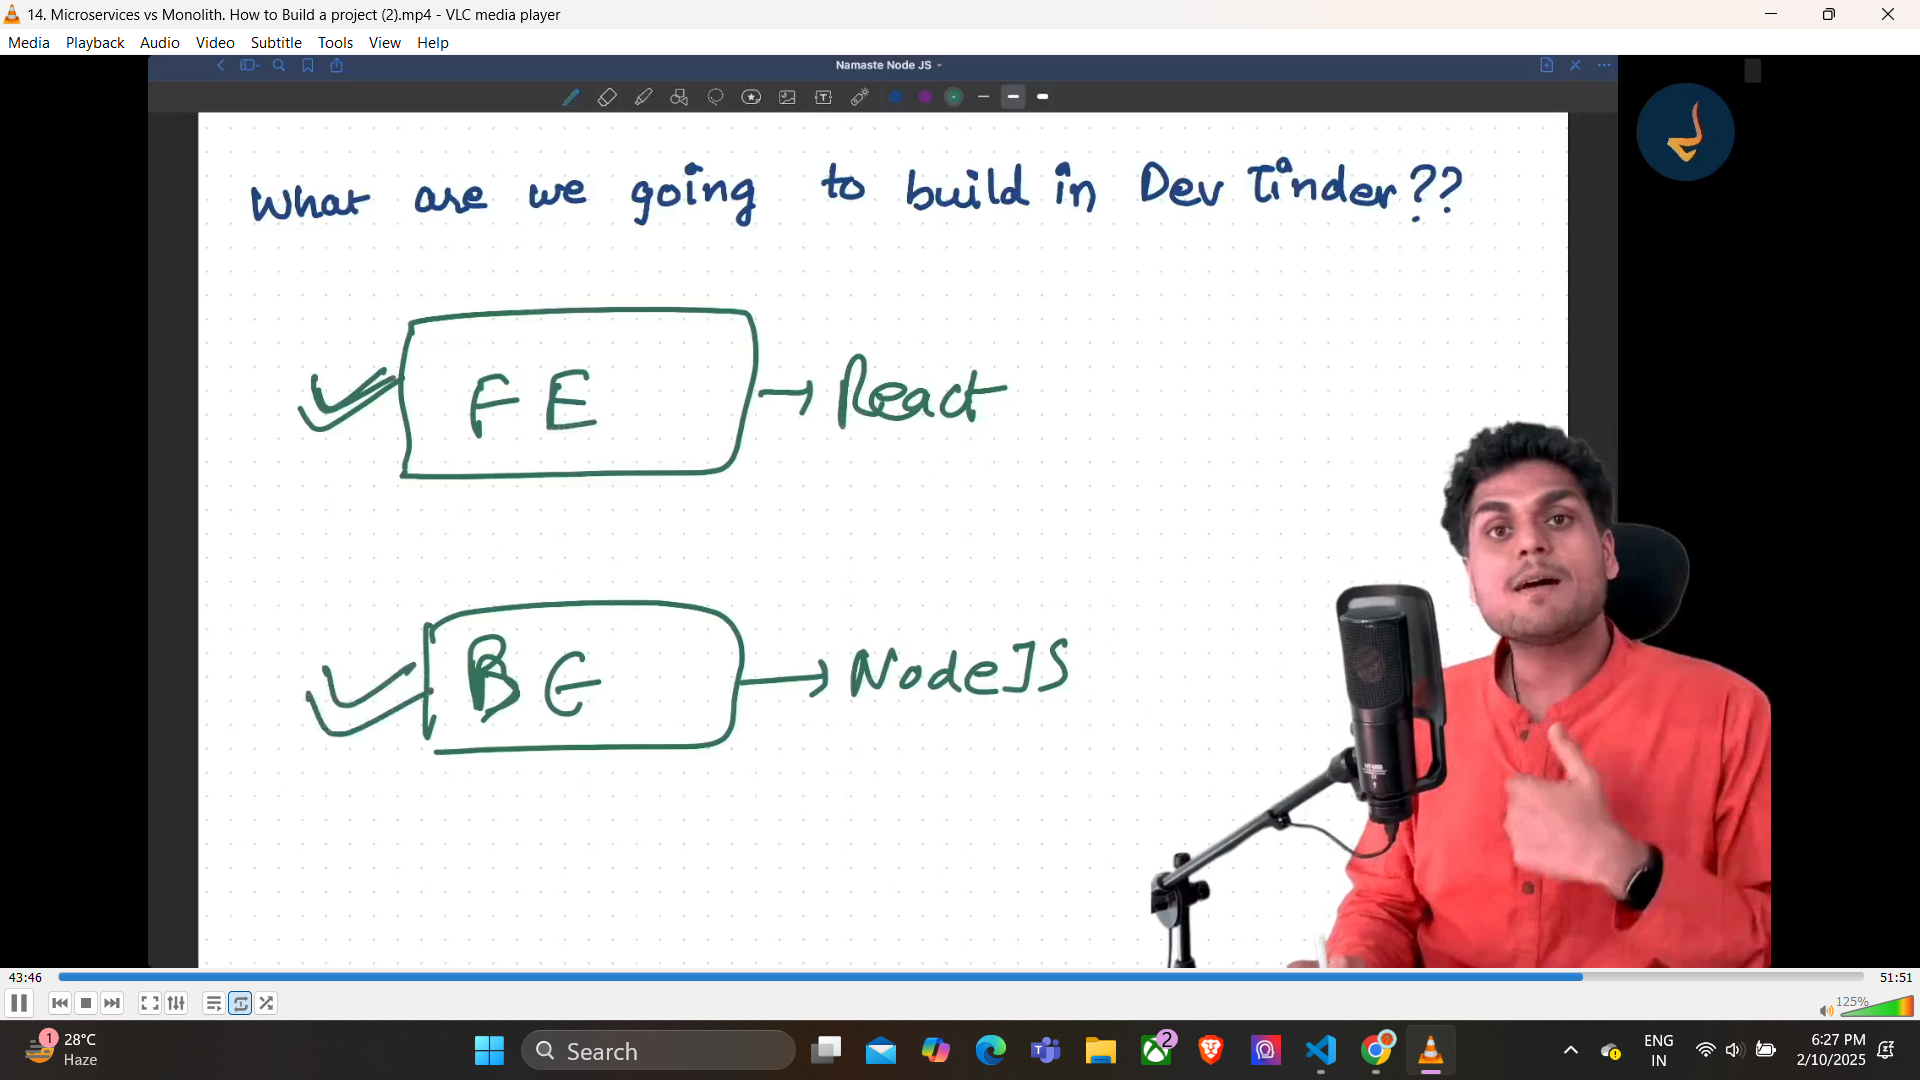 14. Microservices vs Monolith. How to Build a project (2).mp4 - VLC media player
Media Playback Audio Video Subtitle Tools View Help
Namaste Node JS
What are we going to build in Dev Tinder??
FE → React
BE → NodeJS
43:46
51:51
125%
1
28°C
Haze
Search
2
ENG
IN
6:27 PM
2/10/2025